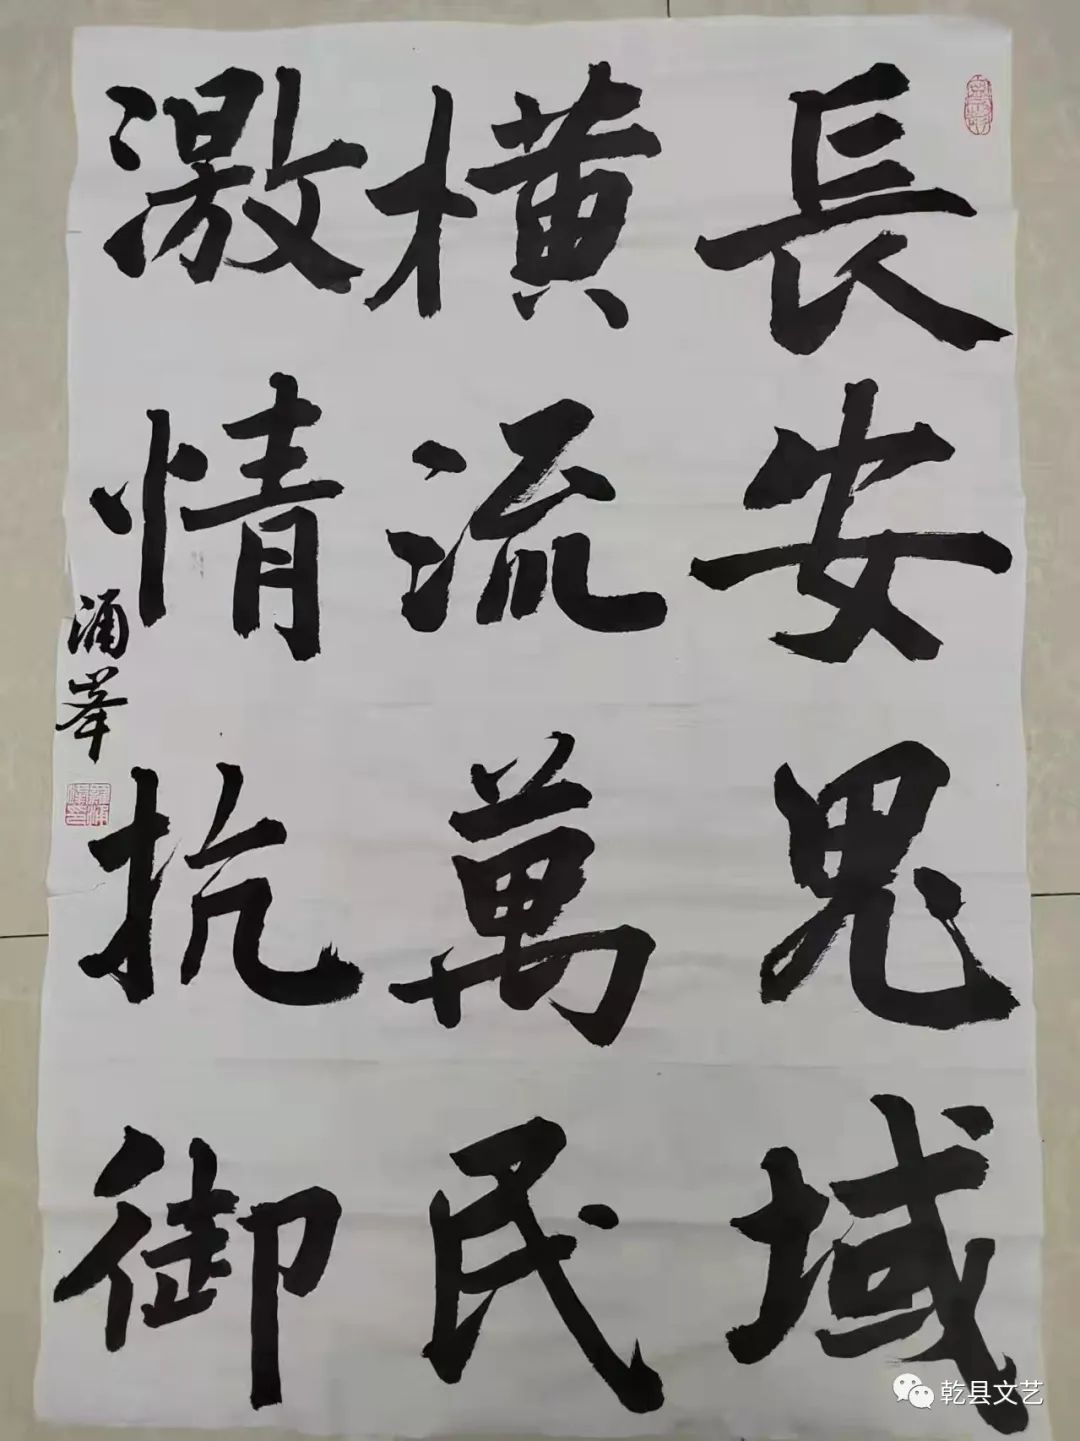 長安鬼域
橫流萬民
激情抗御
涌峯
乾县文艺